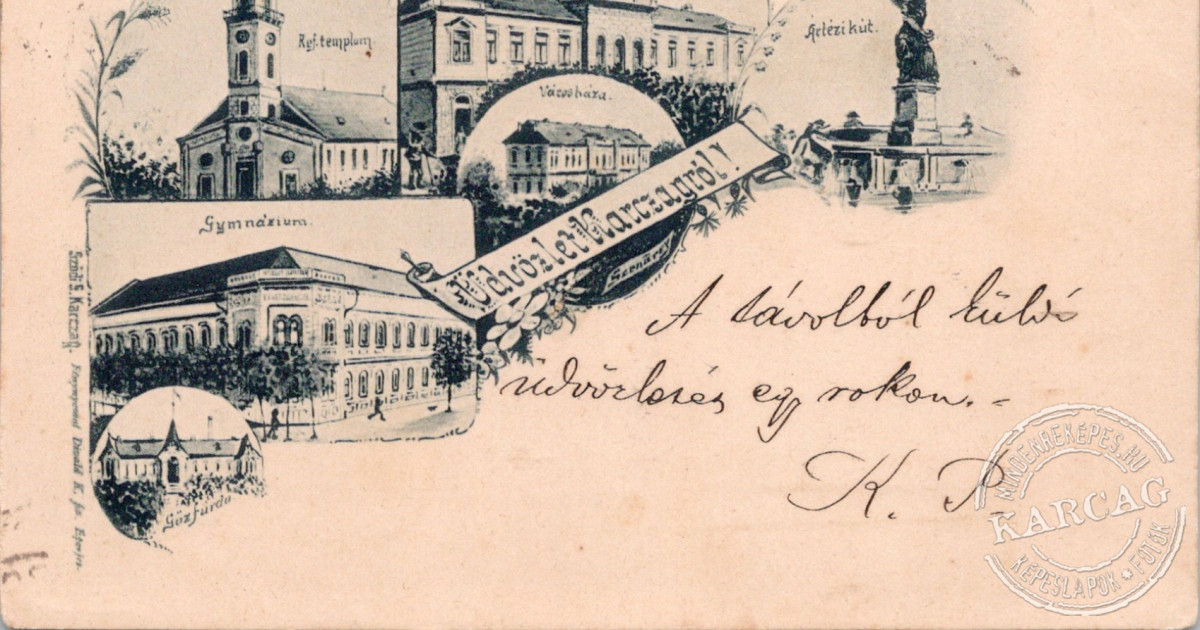 Ref. templom
Városháza.
Artézi kút.
Üdvözlet Karczagról!
Gymnázium.
Gőzfürdő
Szódi S. Karczag. Fénynyomat Divald K. fia Eperjes.
A távolból küld
üdvözlesés egy rokon. -
K. P.
MINDENREKÉPES.HU
KARCAG
KÉPESLAPOK * FOTÓK